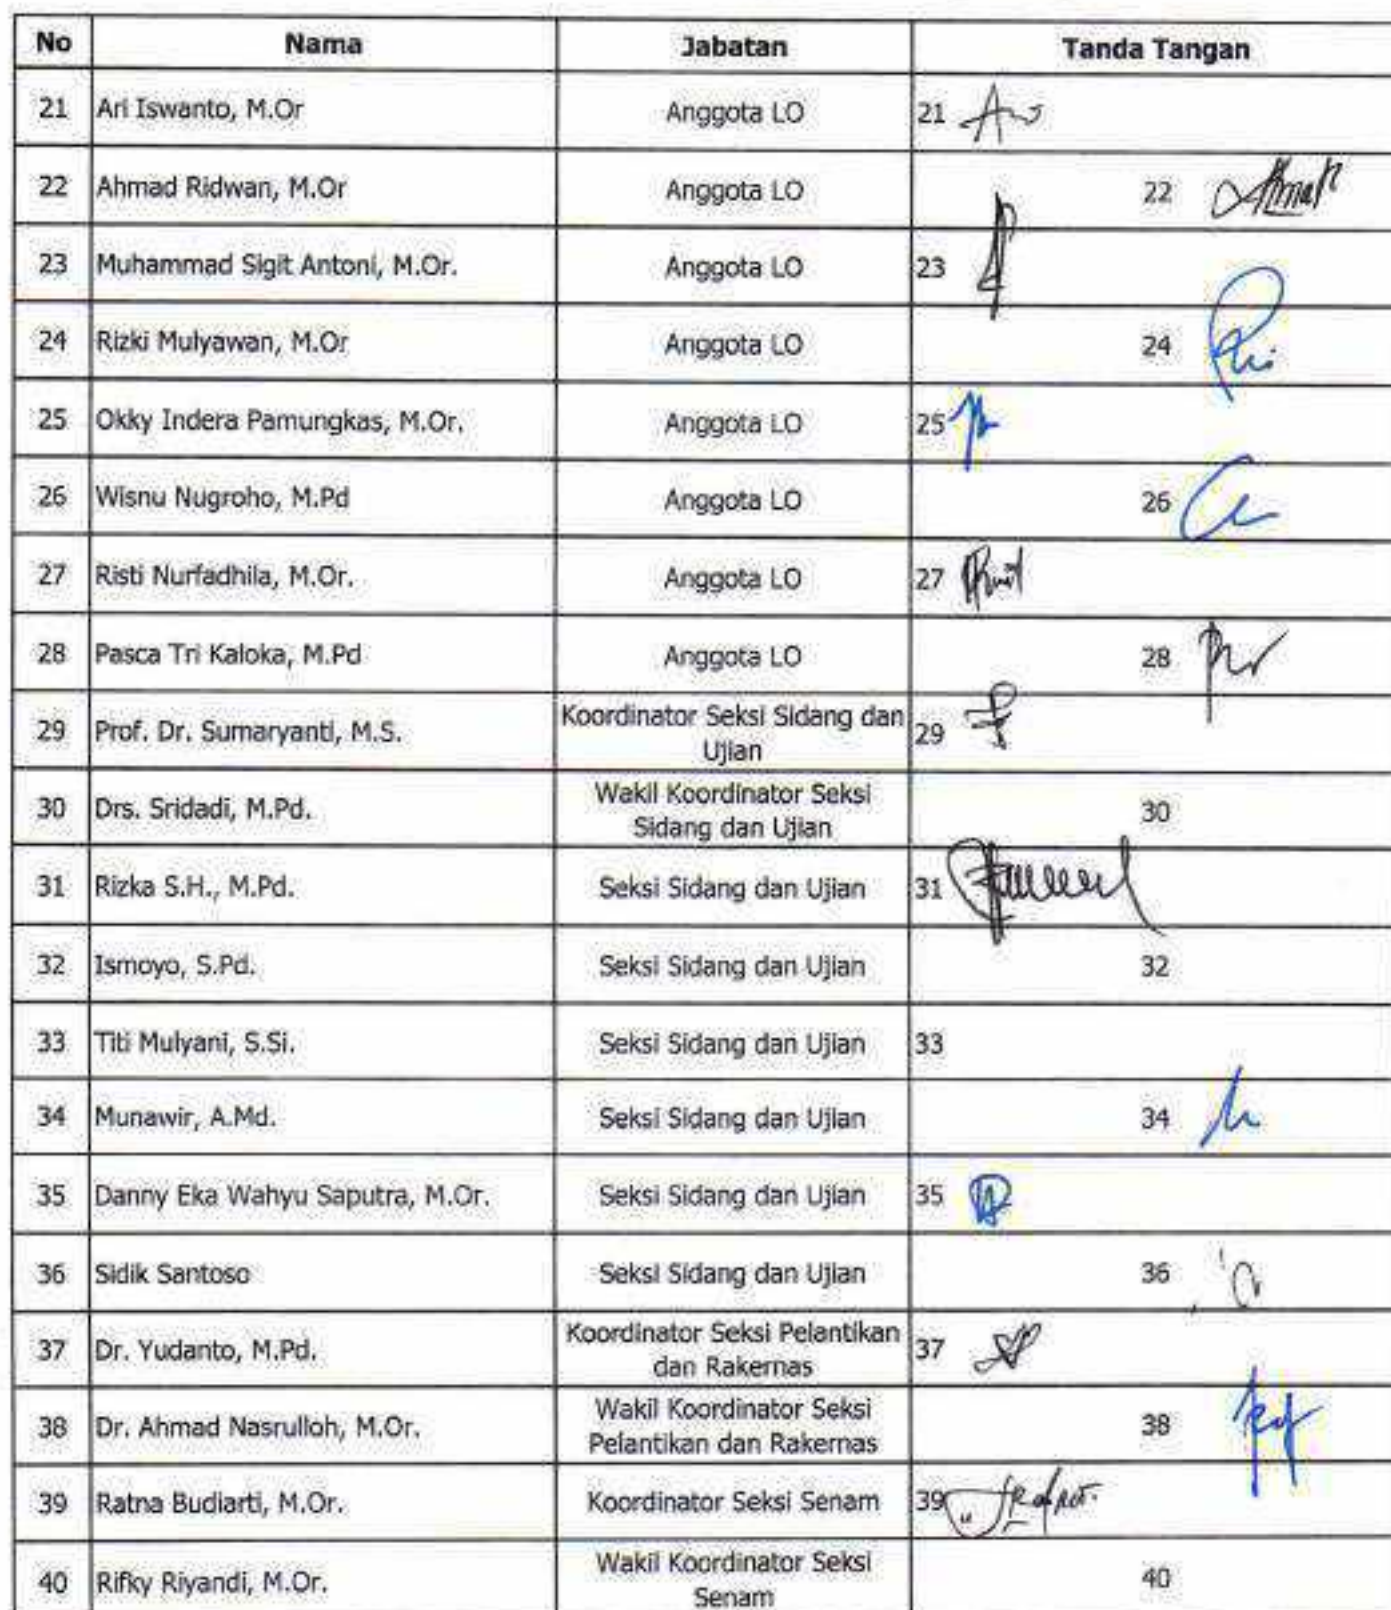 No Nama Jabatan Tanda Tangan
21 Ari Iswanto, M.Or Anggota LO 21
22 Ahmad Ridwan, M.Or Anggota LO 22
23 Muhammad Sigit Antoni, M.Or. Anggota LO 23
24 Rizki Mulyawan, M.Or Anggota LO 24
25 Okky Indera Pamungkas, M.Or. Anggota LO 25
26 Wisnu Nugroho, M.Pd Anggota LO 26
27 Risti Nurfadhila, M.Or. Anggota LO 27
28 Pasca Tri Kaloka, M.Pd Anggota LO 28
29 Prof. Dr. Sumaryanti, M.S. Koordinator Seksi Sidang dan 29
Ujian
30 Drs. Sridadi, M.Pd. Wakil Koordinator Seksi 30
Sidang dan Ujian
31 Rizka S.H., M.Pd. Seksi Sidang dan Ujian 31
32 Ismoyo, S.Pd. Seksi Sidang dan Ujian 32
33 Titi Mulyani, S.Si. Seksi Sidang dan Ujian 33
34 Munawir, A.Md. Seksi Sidang dan Ujian 34
35 Danny Eka Wahyu Saputra, M.Or. Seksi Sidang dan Ujian 35
36 Sidik Santoso Seksi Sidang dan Ujian 36
37 Dr. Yudanto, M.Pd. Koordinator Seksi Pelantikan 37
dan Rakernas
38 Dr. Ahmad Nasrulloh, M.Or. Wakil Koordinator Seksi 38
Pelantikan dan Rakernas
39 Ratna Budiarti, M.Or. Koordinator Seksi Senam 39
40 Rifky Riyandi, M.Or. Wakil Koordinator Seksi 40
Senam